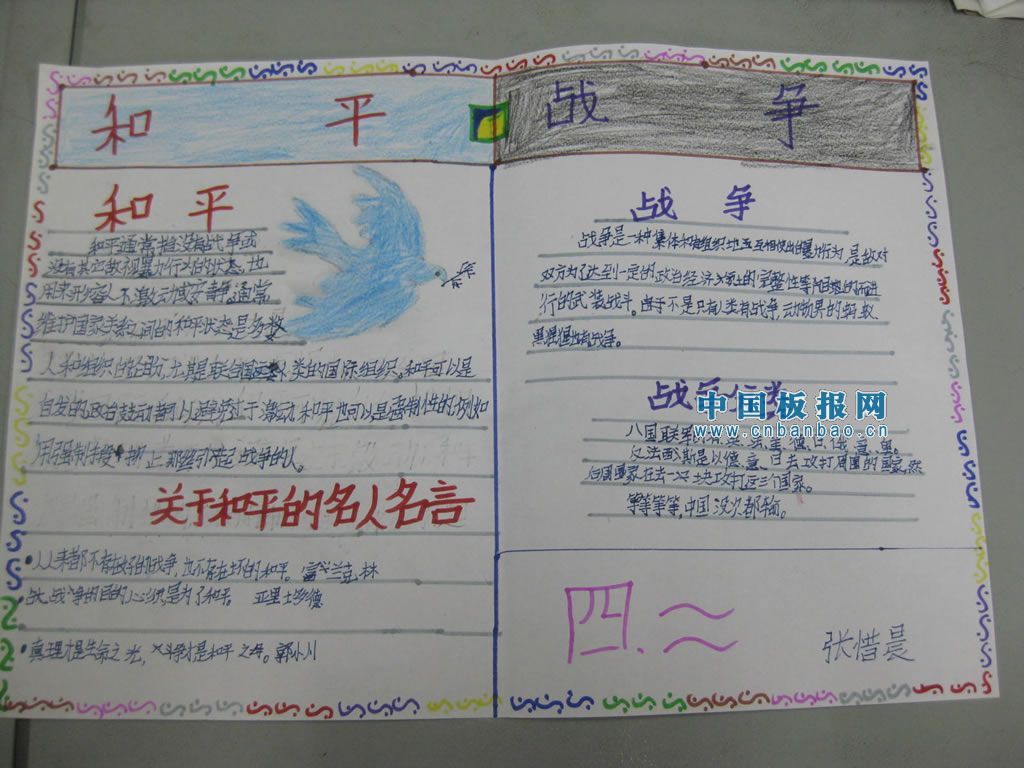 和 平
战 争
和 平
和平通常指没有战争或
没有其它敌视暴力行为的状态,也
用来形容人不激动或安静。通常
维护国家关系之间的和平状态是多数
人和组织的
是联合国
人类的国际组织。和平可以是
自发的政治鼓动者可以避
激动 和平也可以是强制性的,例如
用强制
止那些引起战争的人。
关于和平的名人名言
从来都不存在好的战争,也不存在坏的和平。富兰克林
战争的目的必须是为了和平。 亚里士多德
真理才是生命之光,
才是和平之母。郭小川
战 争
战争是一种集体和有组织地互相使用暴力行为,是敌对
双方为了达到一定的政治经济
的完整性等目的而进
行的武装战斗。由于不是只有人类有战争,动物界的蚂蚁
黑猩猩也有战争。
战争
中国板报网
www.cnbanbao.cn
八国联军
德、日、俄、意、奥。
反法西斯是以德、意、日去攻打周围的国家,然
后周围国家在去一块攻打这三个国家。
等等等等,中国没次都输。
四.二
张惜晨